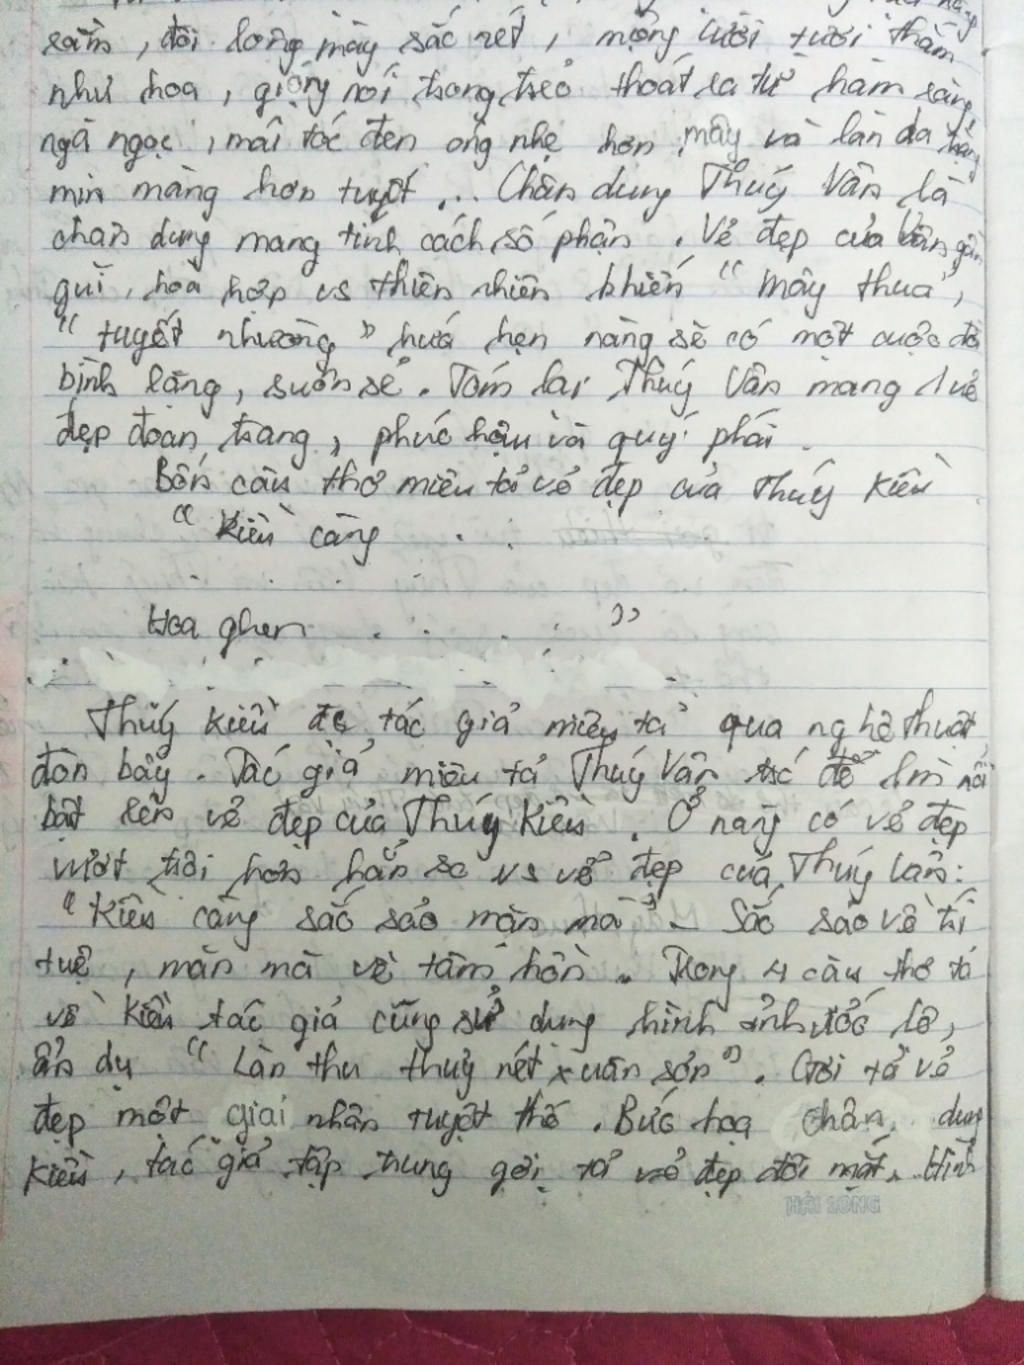 rằm, đôi lông mày sắc nét, miệng cười tươi thắm
như hoa, giọng nói trong trẻo thoát ra từ hàm răng
ngà ngọc, mái tóc đen óng nhẹ hơn mây và làn da trắng
mịn màng hơn tuyết... Chân dung Thuý Vân là
chân dung mang tính cách số phận. Vẻ đẹp của Vân gần
gũi, hoà hợp vs thiên nhiên khiến "mây thua",
"tuyết nhường" hứa hẹn nàng sẽ có một cuộc đời
bình lặng, suôn sẻ. Tóm lại Thuý Vân mang 1 vẻ
đẹp đoan trang, phúc hậu và quý phái.
Bốn câu thơ miêu tả vẻ đẹp của Thuý Kiều
"Kiều càng . .
. . . . .
Hoa ghen . . . . . "
Thuý Kiều đc tác giả miêu tả qua nghệ thuật
đòn bẩy. Tác giả miêu tả Thuý Vân trc để làm nổi
bật lên vẻ đẹp của Thuý Kiều. Ở nàng có vẻ đẹp
vượt trội hơn hẳn so vs vẻ đẹp của Thuý Vân:
"Kiều càng sắc sảo mặn mà". Sắc sảo về trí
tuệ, mặn mà về tâm hồn. Trong 4 câu thơ tả
về Kiều tác giả cũng sử dụng hình ảnh ước lệ,
ẩn dụ "Làn thu thuỷ nét xuân sơn". Gợi tả vẻ
đẹp một giai nhân tuyệt thế. Bức hoạ chân dung
Kiều, tác giả tập trung gợi tả vẻ đẹp đôi mắt. Hình
HẢI SONG